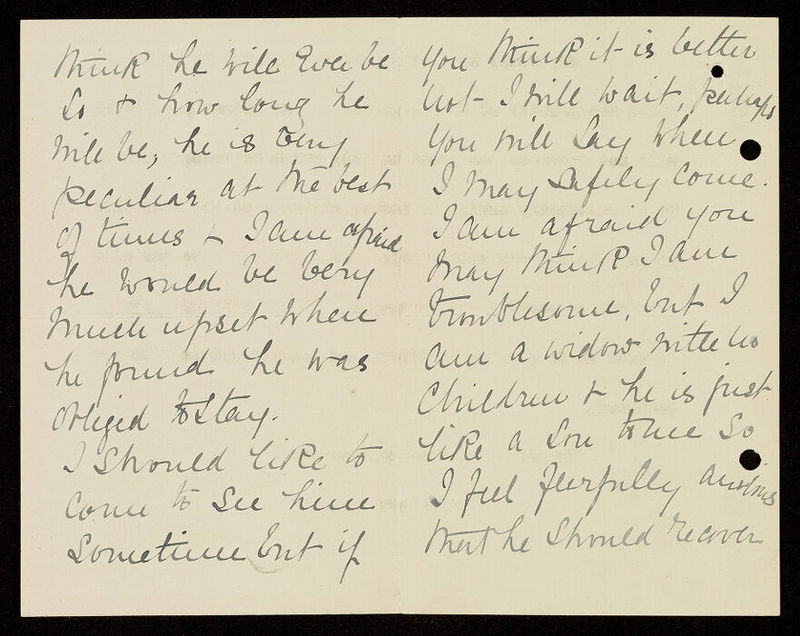 think he will ever be
so & how long he
will be, he is very
peculiar at the best
of times & I am afraid
he would be very
much upset when
he found he was
obliged to stay.
I should like to
come to see him
sometime but if
you think it is better
not - I will wait, perhaps
you will say when
I may safely come.
I am afraid you
may think I am
troublesome, but I
am a widow with no
children & he is just
like a son to me so
I feel fearfully anxious
that he should recover